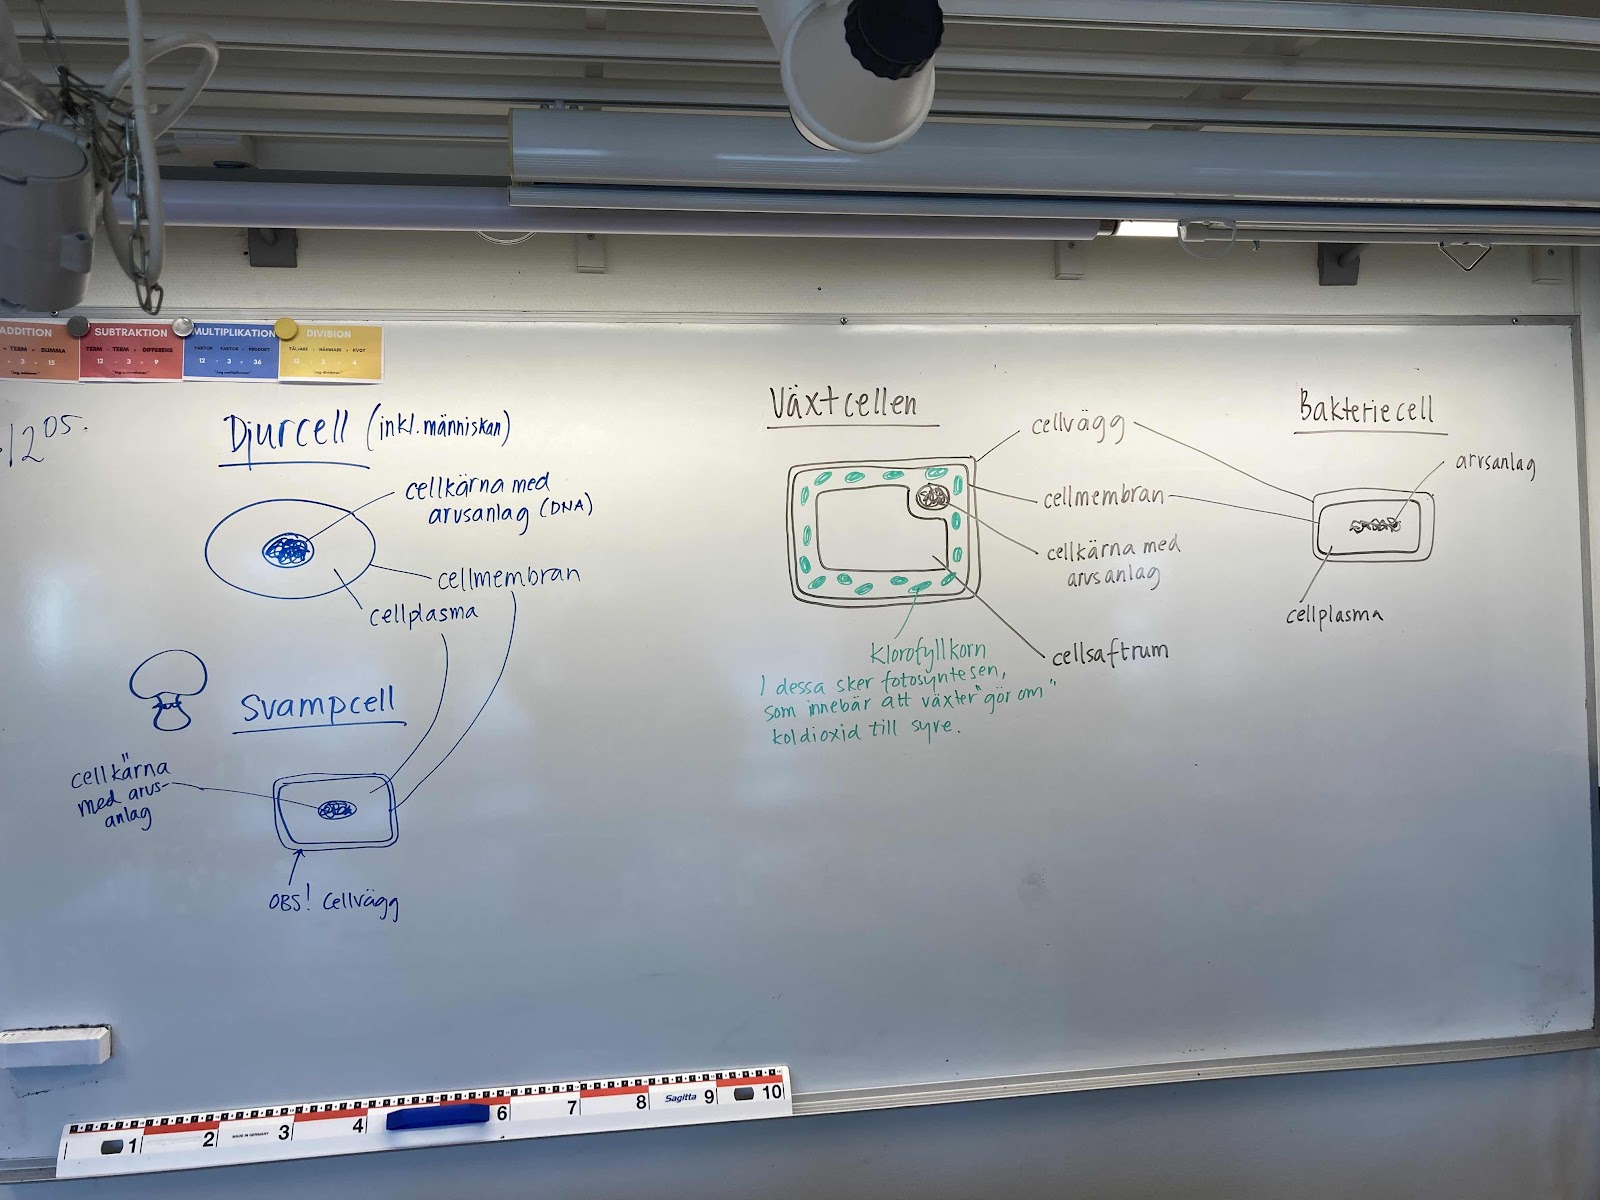 ADDITION
TERM + SUMMA
3 = 15
SUBTRAKTION
TERM - TERM = DIFFERENS
12 - 3 = 9
MULTIPLIKATION
FAKTOR · FAKTOR = PRODUKT
12 · 3 = 36
DIVISION
TÄLJARE ÷ NÄMNARE = KVOT
12 05.
Djurcell (inkl. människan)
cellkärna med
arvsanlag (DNA)
cellmembran
cellplasma
Svampcell
cellkärna
med arvs-
anlag
OBS! Cellvägg
Växtcellen
cellvägg
cellmembran
cellkärna med
arvsanlag
cellsaftrum
Klorofyllkorn
I dessa sker fotosyntesen,
som innebär att växter "gör om"
koldioxid till syre.
Bakteriecell
arvsanlag
cellplasma
1 2 MADE IN GERMANY 3 4 6 7 8 Sagitta 9 10